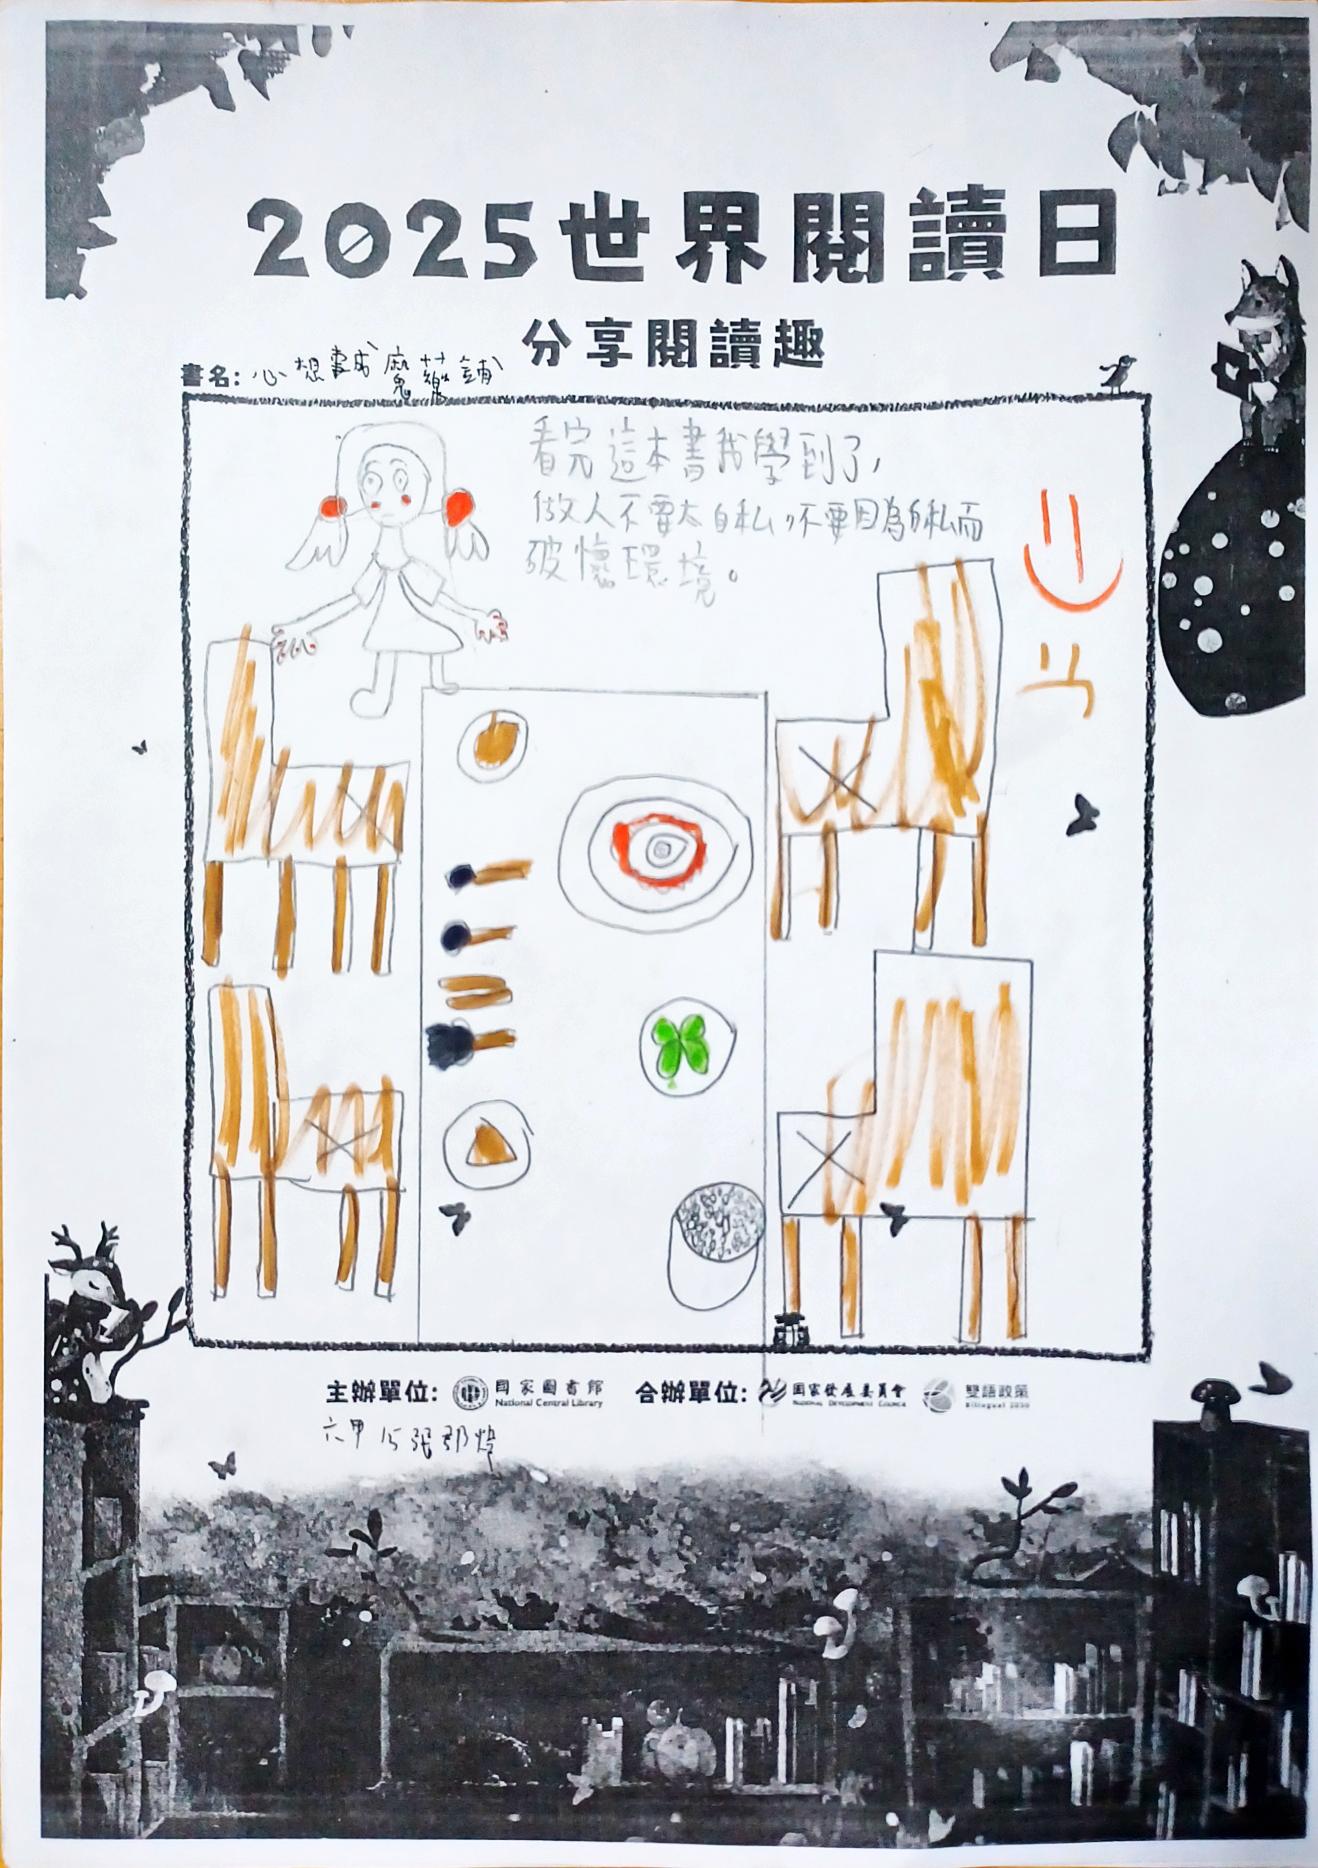 2025世界閱讀日
分享閱讀趣
書名:心想事成魔藥鋪
看完這本書我學到了,
做人不要太自私,不要因為自私而
破懷環境。
主辦單位: 國家圖書館 合辦單位: 國家發展委員會 雙語政策
National Central Library NATIONAL DEVELOPMENT COUNCIL Bilingual 2030
六甲 15 張郡